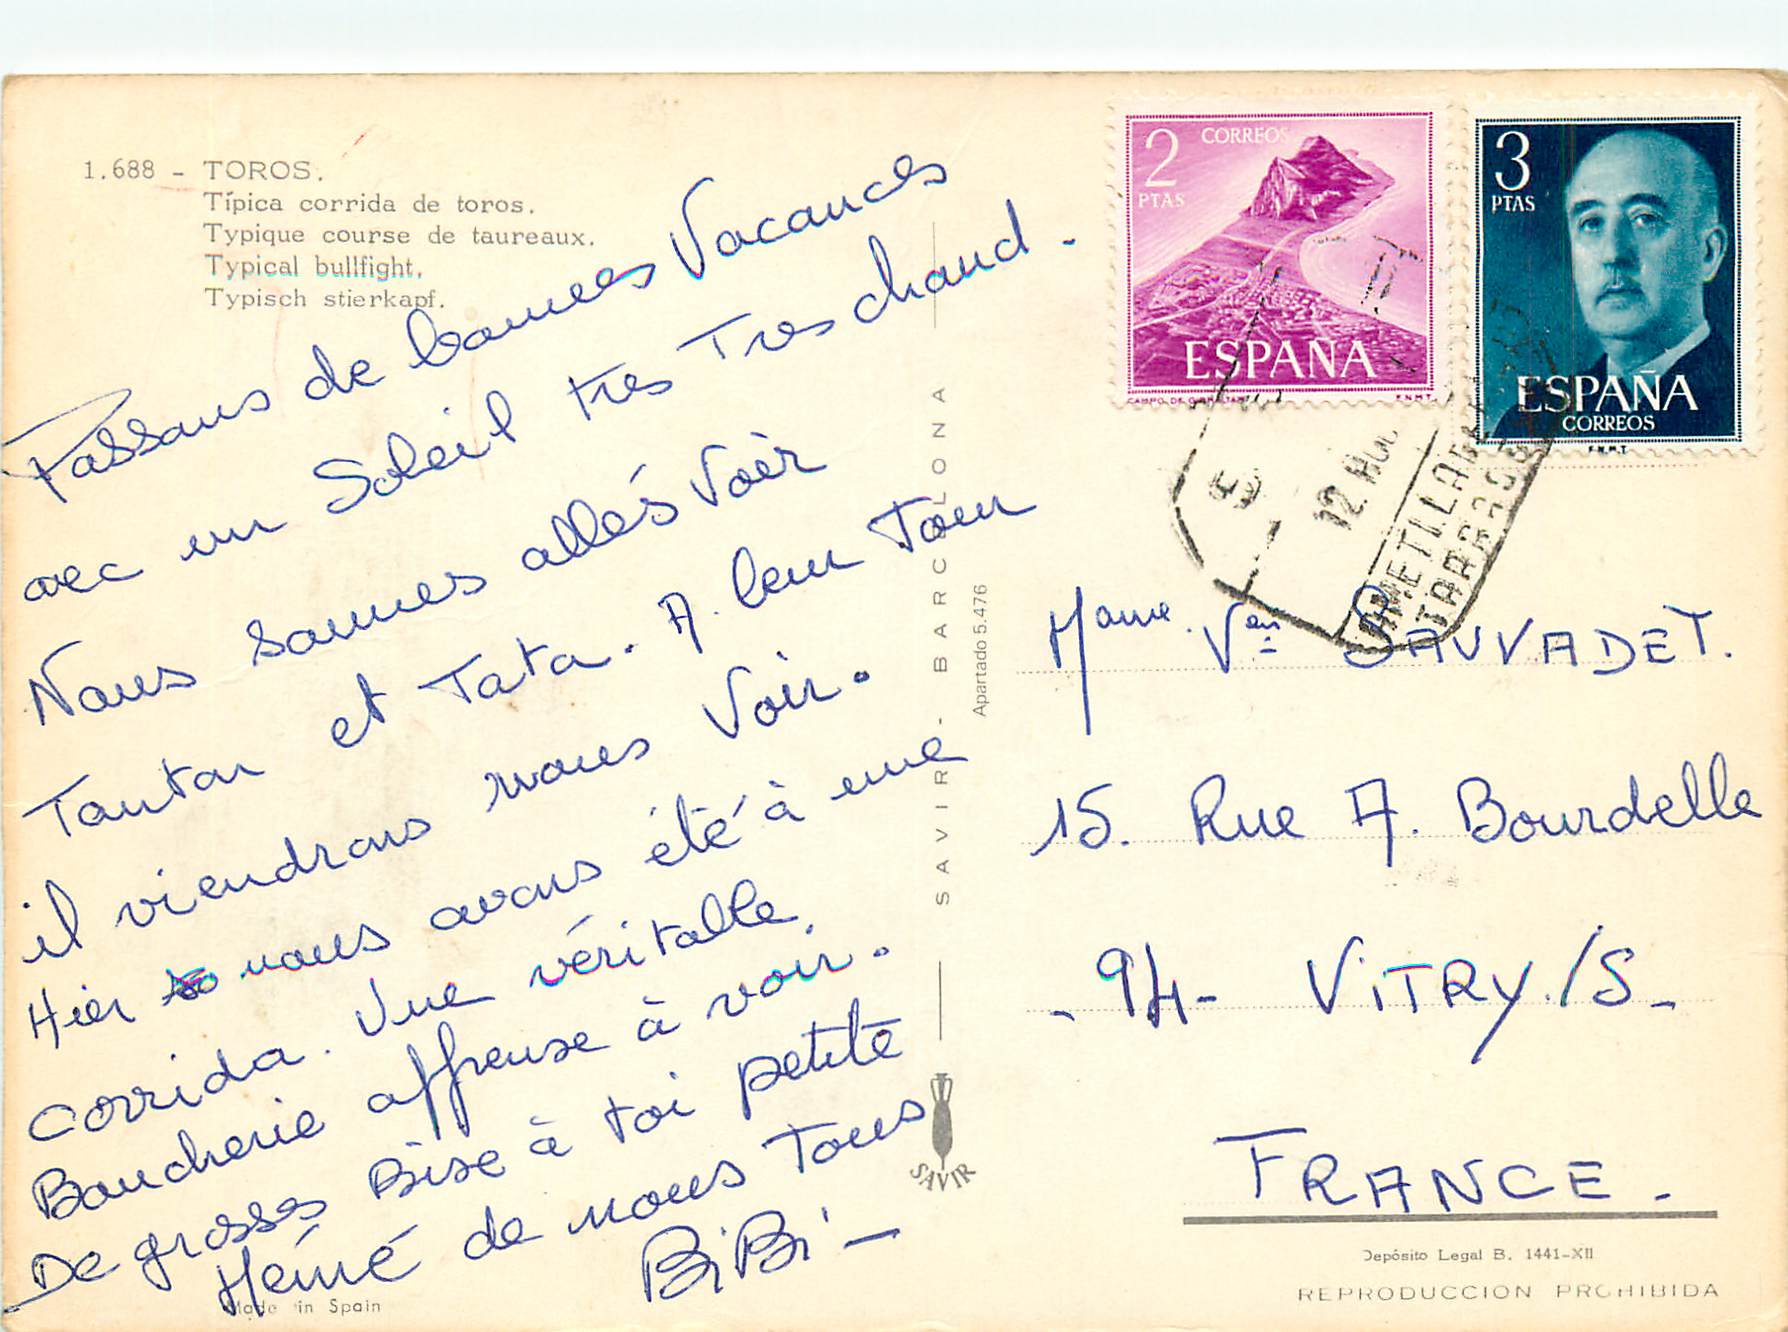 1.688 - TOROS.
Típica corrida de toros.
Typique course de taureaux.
Typical bullfight.
Typisch stierkapf.
Passons de bonnes Vacances
avec un Soleil très Tres chaud.
Nous sommes allés Voir
Tonton et Tata. A leur Tour
il viendrons nous Voir.
Hier nous avons été à une
corrida. Une véritable
Boucherie affreuse à voir.
De grosses Bise à toi petite
Mémé de nous Tous
BiBi
Made in Spain
SAVIR - BARCELONA
Apartado 5.476
SAVIR
2 PTAS
CORREOS
ESPAÑA
CAMPO DE GIBRALTAR
F.N.M.T.
3 PTAS
ESPAÑA
CORREOS
F.N.M.T.
12.
TARRAGONA
Mame. Ve SAUVADET.
15. Rue A. Bourdelle
- 94 - ViTRY./S -
FRANCE.
Depósito Legal B. 1441-XII
REPRODUCCION PROHIBIDA